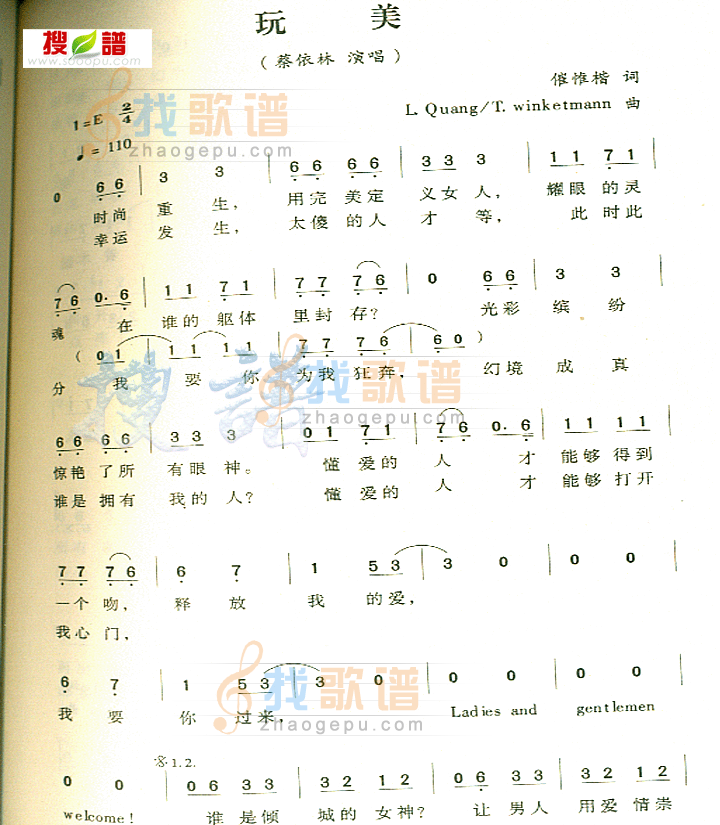 玩 美
搜谱
www.sooopu.com
(蔡依林 演唱)
催惟楷 词
L. Quang/T. winketmann 曲
1=E 2/4
♩= 110
找歌谱
zhaogepu.com
0 6 6 | 3 3 | 6 6 6 6 | 3 3 3 | 1 1 7 1 |
时尚 重 生, 用完 美定 义女人, 耀眼的灵
幸运 发 生, 太傻的人 才 等, 此时此
7 6 0. 6 | 1 1 7 1 | 7 7 7 6 | 0 6 6 | 3 3 |
魂 在 谁的 躯体 里封 存? 光彩 缤 纷
( 0 1 | 1 1 1 1 | 7 7 7 6 | 6 0 )
分 我 要 你 为我 狂奔, 幻境 成 真
搜谱
找歌谱
zhaogepu.com
6 6 6 6 | 3 3 3 | 0 1 7 1 | 7 6 0. 6 | 1 1 1 1 |
惊艳 了所 有眼 神。 懂 爱的 人 才 能够 得到
谁是 拥有 我的 人? 懂 爱的 人 才 能够 打开
7 7 7 6 | 6 7 | 1 5 3 | 3 0 | 0 0 |
一个 吻, 释 放 我 的 爱,
我心 门,
找歌谱
zhaogepu.com
6 7 | 1 5 3 | 3 0 | 0 0 | 0 0 |
我 要 你 过来, Ladies and gentlemen
1.2.
0 0 | 0 6 3 3 | 3 2 1 2 | 0 6 3 3 | 3 2 1 2 |
welcome! 谁 是倾 城的 女神? 让 男人 用爱 情崇